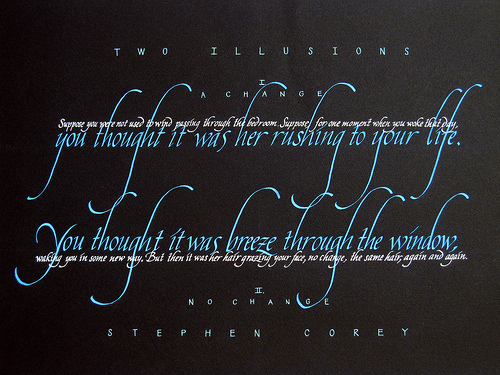 TWO ILLUSIONS
I.
A CHANGE
Suppose you were not used to wind passing through the bedroom. Suppose, for one moment when you woke that day,
you thought it was her rushing to your life.
You thought it was breeze through the window,
waking you in some new way. But then it was her hair grazing your face, no change, the same hair, again and again.
II.
NO CHANGE
STEPHEN COREY